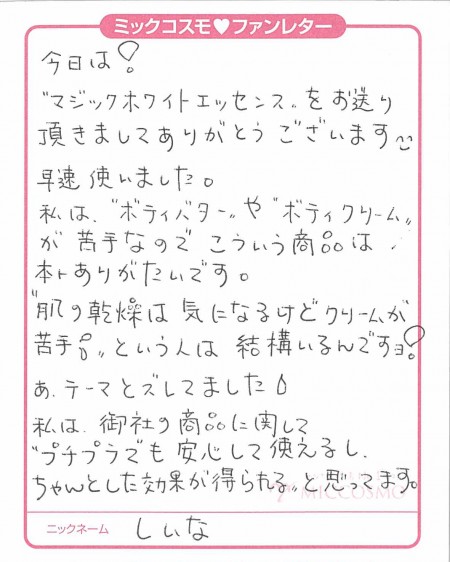 ミックコスモ♥ファンレター
今日は!
"マジックホワイトエッセンス"をお送り
頂きましてありがとうございます
早速使いました。
私は、"ボディバター"や"ボディクリーム"
が苦手なのでこういう商品は、
本トありがたいです。
"肌の乾燥は気になるけどクリームが
苦手"という人は結構いるんですョ!
あ、テーマとズレてました
私は、御社の商品に関して
"プチプラでも安心して使えるし、
ちゃんとした効果が得られる"と思ってます。
MICCOSMO
ニックネーム しいな